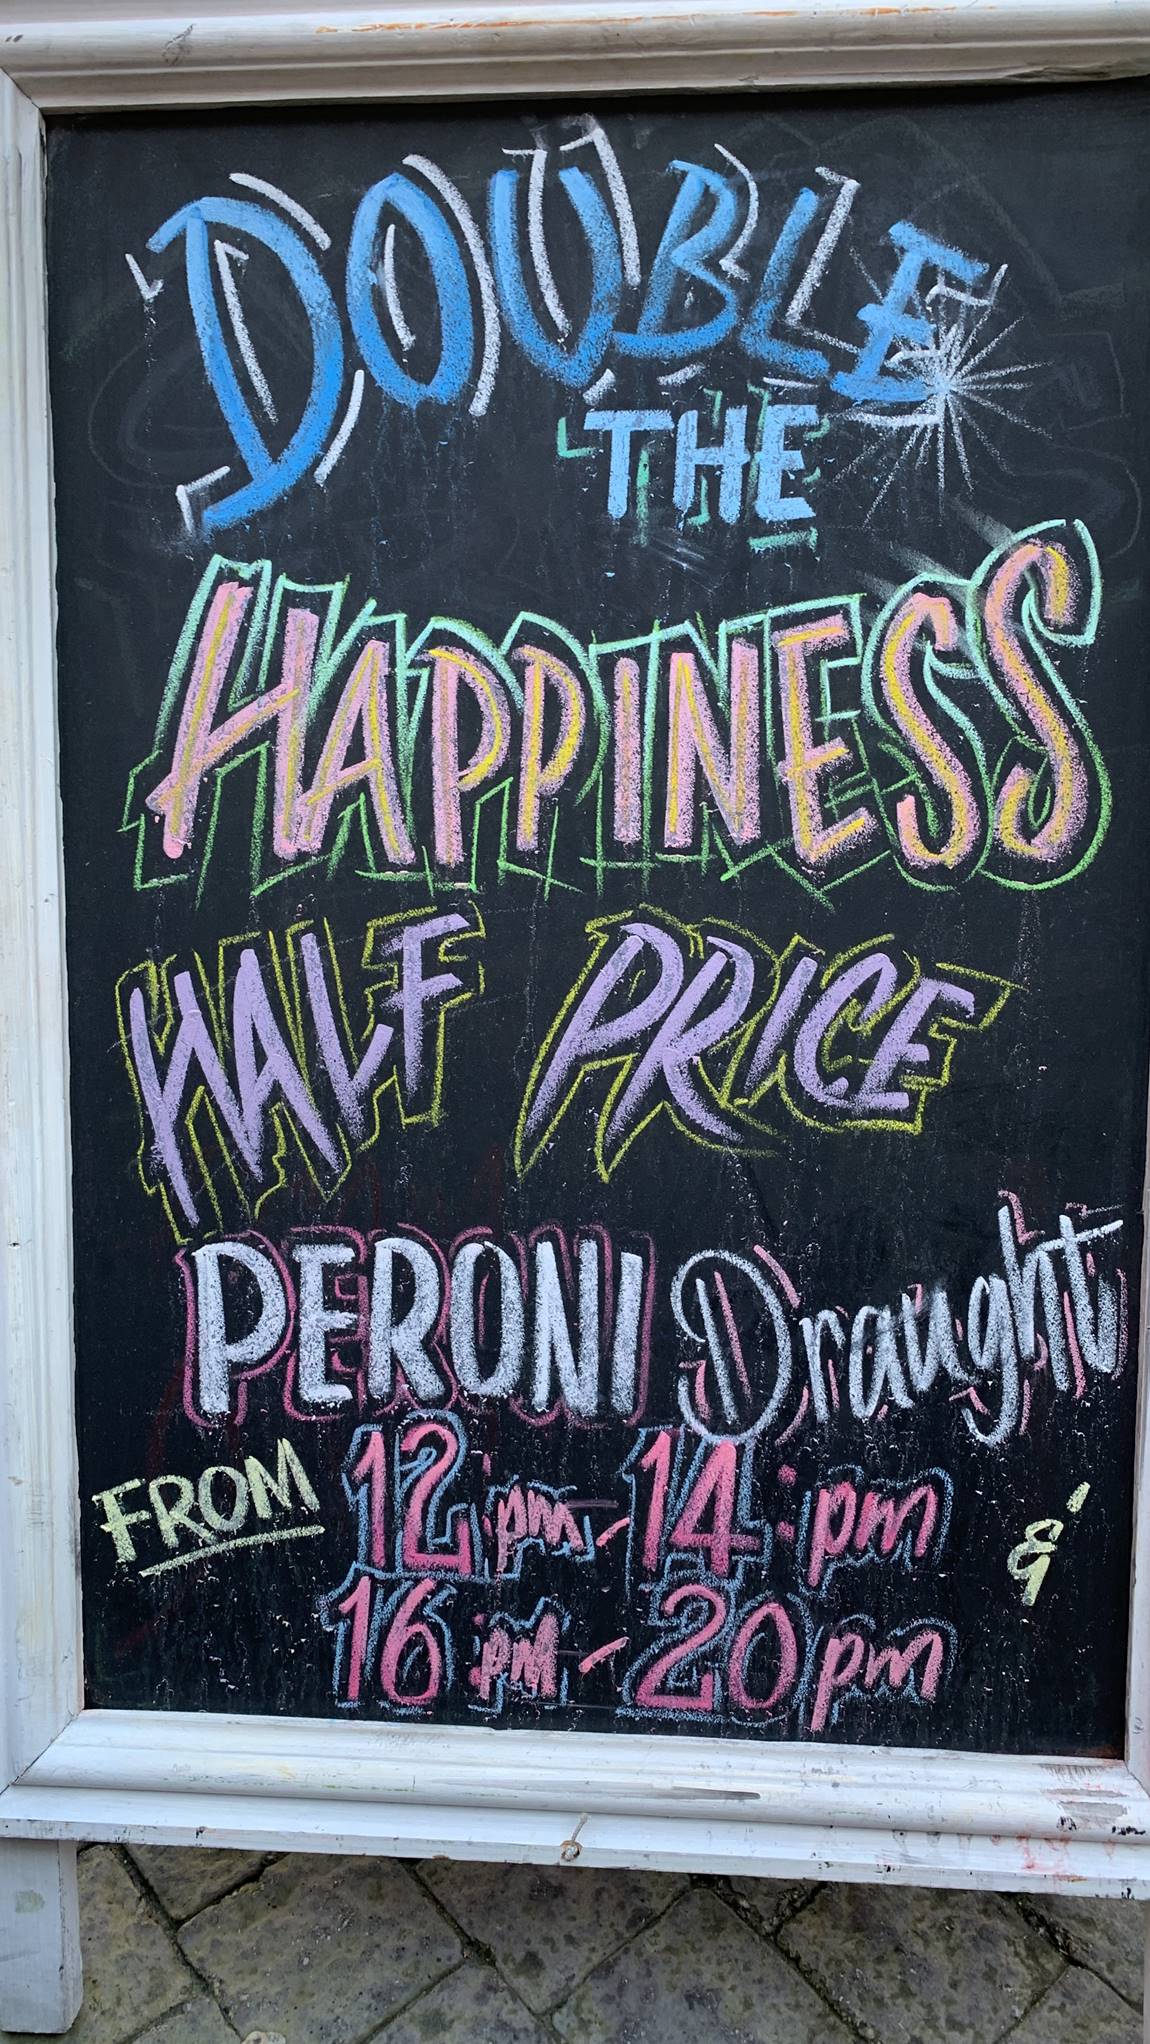 DOUBLE
THE
HAPPINESS
HALF PRICE
PERONI Draught
FROM 12:pm - 14:pm &
16:pm - 20pm